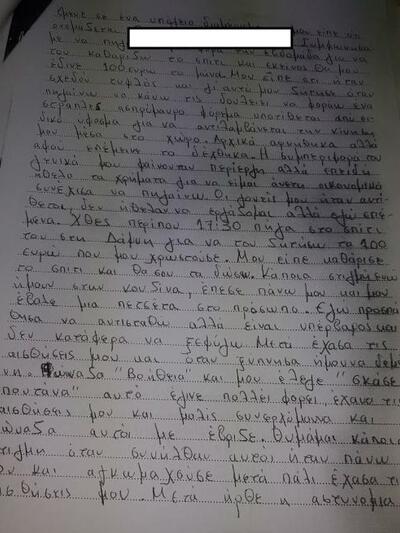 έμενε σε ένα υπόγειο διαμέρισμα
ονομάζεται μου είπε να
με να πηγαίνω φορά την εβδομάδα για να
του καθαρίζω το σπίτι και εκείνος θα μου
έδινε 100 ευρώ το μήνα. Μου είπε ότι ήταν
σχεδόν τυφλός και γι αυτό μου ζήτησε όταν
πηγαίνω να κάνω τις δουλειές να φοράω ένα
ασπρόμαυρο φόρεμα υποτίθεται από ει-
δικό ύφασμα για να αντιλαμβάνεται την κίνηση
μου μέσα στο χώρο. Αρχικά αρνήθηκα αλλά
αφού επέμεινε το δέχθηκα. Η συμπεριφορά του
γενικά μου φαινόνταν περίεργη αλλά επειδή
ήθελα τα χρήματα για να είμαι άνετη οικονομικά
συνέχισα να πηγαίνω. Οι γονείς μου ήταν αντί-
θετοι, δεν ήθελαν να εργάζομαι αλλά εγώ επέ-
μενα. Χθες περίπου 17:30 πήγα στο σπίτι
του στη Δάφνη για να του ζητήσω τα 100
ευρώ που μου χρωστούσε. Μου είπε καθάρισε
το σπίτι και θα σου τα δώσω. Κάποια στιγμή ενώ
ήμουν στην κουζίνα, έπεσε πάνω μου και μου
έβαλε μια πετσέτα στο πρόσωπο. Εγώ προσπά
θησα να αντισταθώ αλλά είναι υπέρβαρος και
δεν κατάφερα να ξεφύγω. Μετά έχασα τις
αισθήσεις μου και όταν ξύπνησα ήμουνα δεμέ
νη. Φώναζα "Βοήθεια" και μου έλεγε "σκάσε
πουτάνα" αυτό έγινε πολλές φορές, έχανα τις
αισθήσεις μου και μόλις συνερχόμουνα και
φώναζα αυτός με έβριζε. Θυμάμαι κάποια
στιγμή όταν συνήλθα αυτός ήταν πάνω
μου και αγκομαχούσε μετά πάλι έχασα τις
αισθήσεις μου. Μετά ήρθε η αστυνομία